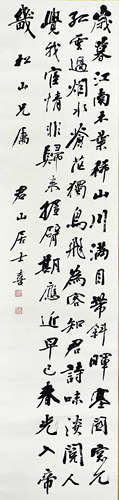 歲暮江南木葉稀山川滿目帶斜暉寥
孤雲過烟水蒼茫獨鳥飛知君詩味淡閒人
覺我宦情非歸來臂期應近早已春光入帝
畿 松山兄屬 君山居士